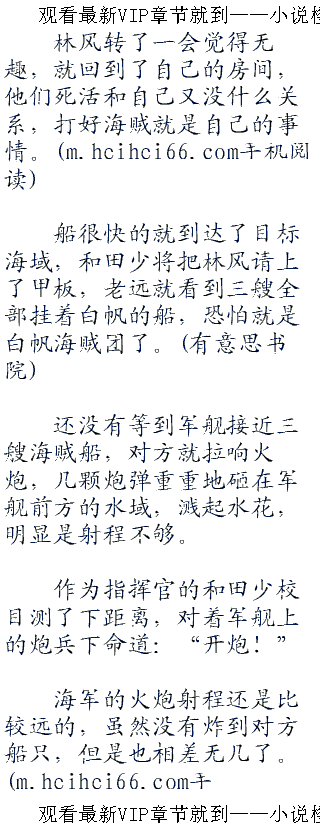 观看最新VIP章节就到——小说检
林风转了一会觉得无
趣，就回到了自己的房间，
他们死活和自己又没什么关
系，打好海贼就是自己的事
情。(m.hcihci66.com手机阅
读)
船很快的就到达了目标
海域，和田少将把林风请上
了甲板，老远就看到三艘全
部挂着白帆的船，恐怕就是
白帆海贼团了。(有意思书
院)
还没有等到军舰接近三
艘海贼船，对方就拉响火
炮，几颗炮弹重重地砸在军
舰前方的水域，溅起水花，
明显是射程不够。
作为指挥官的和田少校
目测了下距离，对着军舰上
的炮兵下命道：“开炮！”
海军的火炮射程还是比
较远的，虽然没有炸到对方
船只，但是也相差无几了。
(m.hcihci66.com手
观看最新VIP章节就到——小说